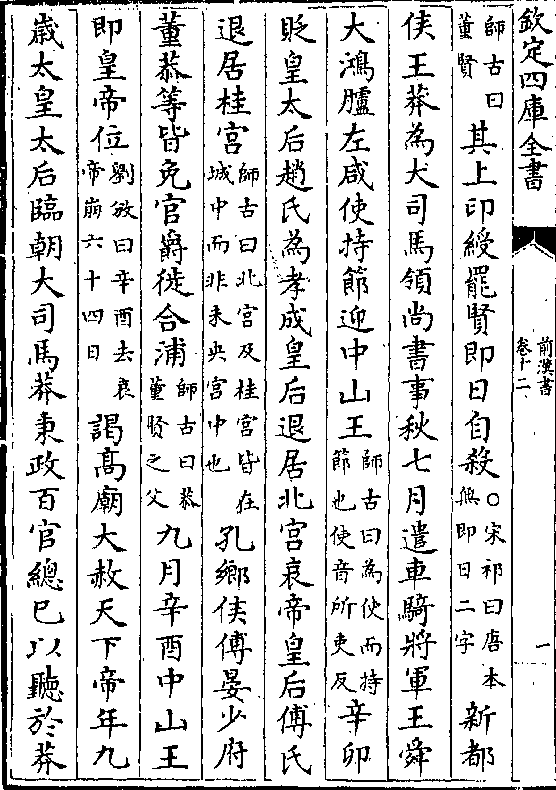 欽定四庫全書
前漢書
卷十二
一
師古曰
董賢
其上印綬罷賢即日自殺
○宋祁曰唐本
無即日二字
新都
侯王莽為大司馬領尚書事秋七月遣車騎將軍王舜
大鴻臚左咸使持節迎中山王
師古曰為使而持
節也使音所吏反
辛卯
貶皇太后趙氏為孝成皇后退居北宮哀帝皇后傅氏
退居桂宮
師古曰北宮及桂宮皆在
城中而非未央宮中也
孔鄉侯傅晏少府
董恭等皆免官爵徙合浦
師古曰恭
董賢之父
九月辛酉中山王
即皇帝位
劉攽曰辛酉去哀
帝崩六十四日
謁高廟大赦天下帝年九
歲太皇太后臨朝大司馬莽秉政百官總已以聽於莽